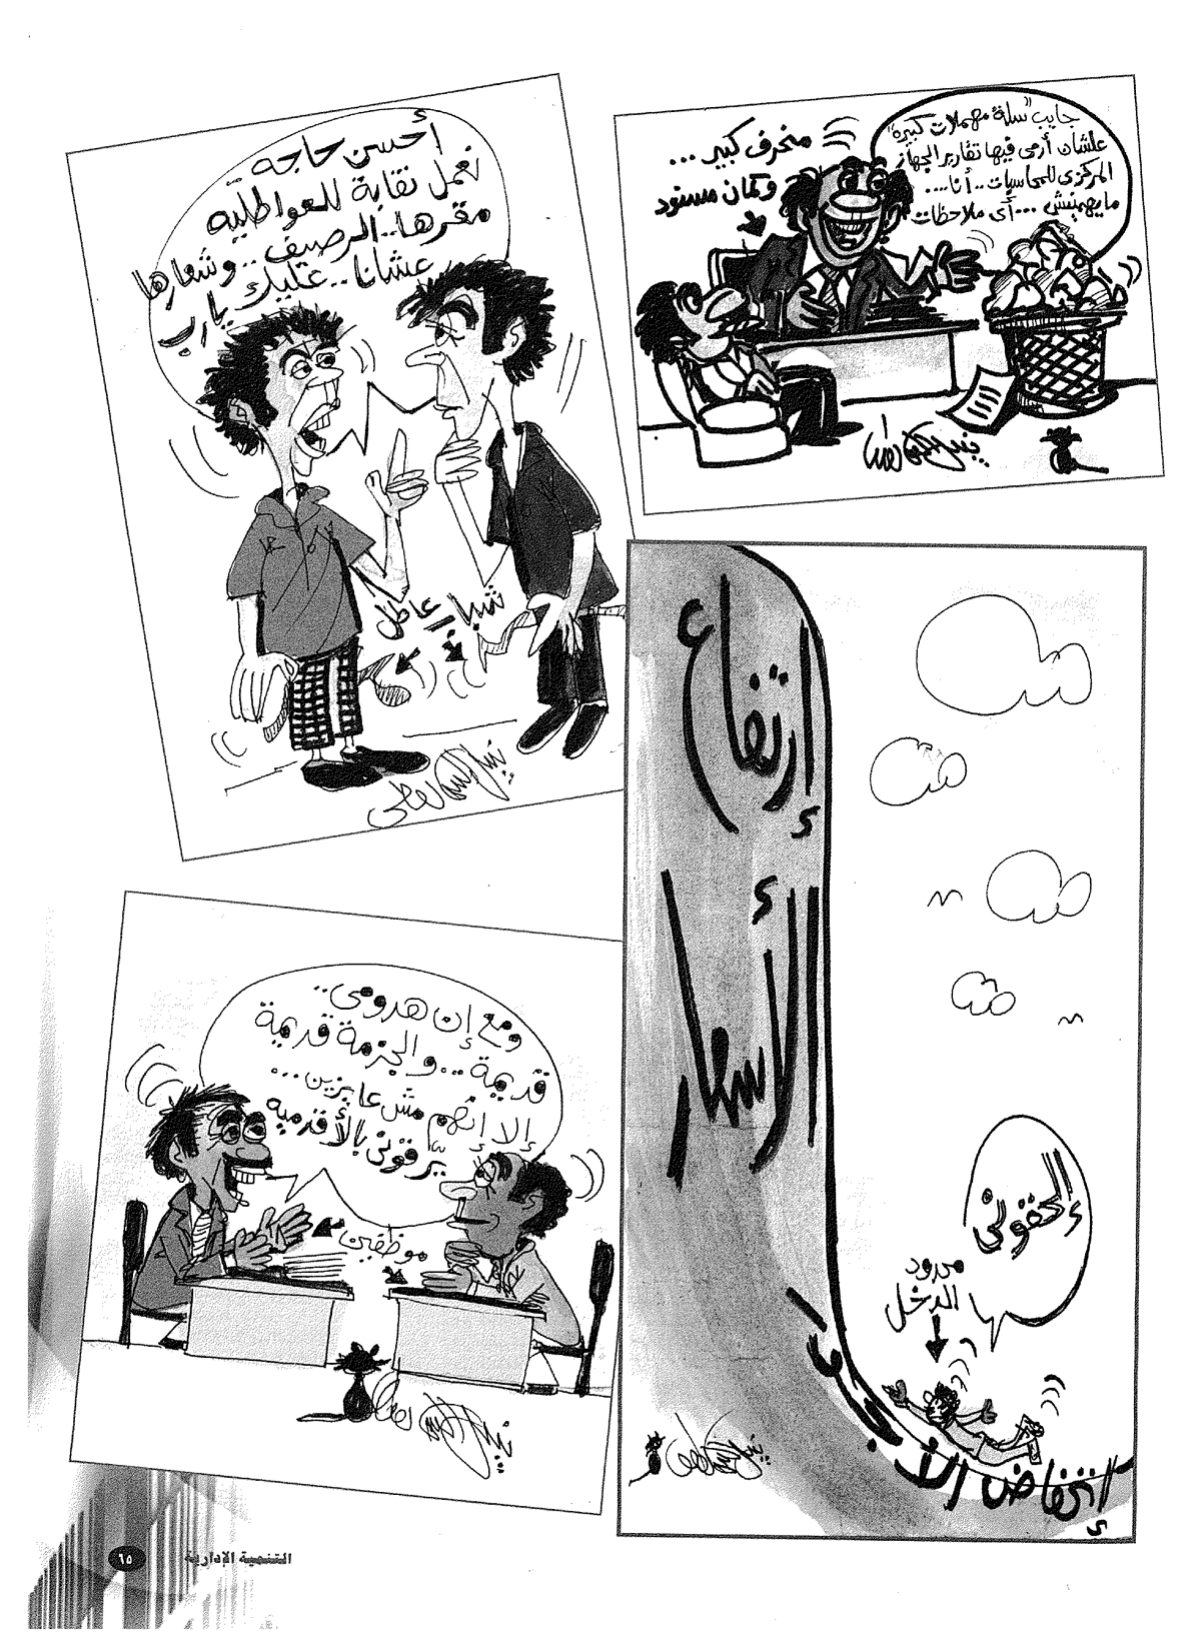 جايب "سلة مهملات كبيرة"
علشان أرمى فيها تقارير الجهاز
المركزى للمحاسبات.. أنا....
مايهمنيش... أى ملاحظات
منحرف كبير...
وكمان مسنود
أحسن حاجة
نعمل نقابة للعواطلية
مقرها.. الرصيف.. وشعارها
عشانا.. عليك يارب
شباب عاطل
إرتفاع
الأسعار
إلحقونى
محدود
الدخل
إنخفاض الأجور
ومع إن هدومى..
قديمة... والجزمة قديمة
إلا إنهم مش عايزين...
يرقونى بالأقدمية
موظفين
التنمية الإدارية
٦٥